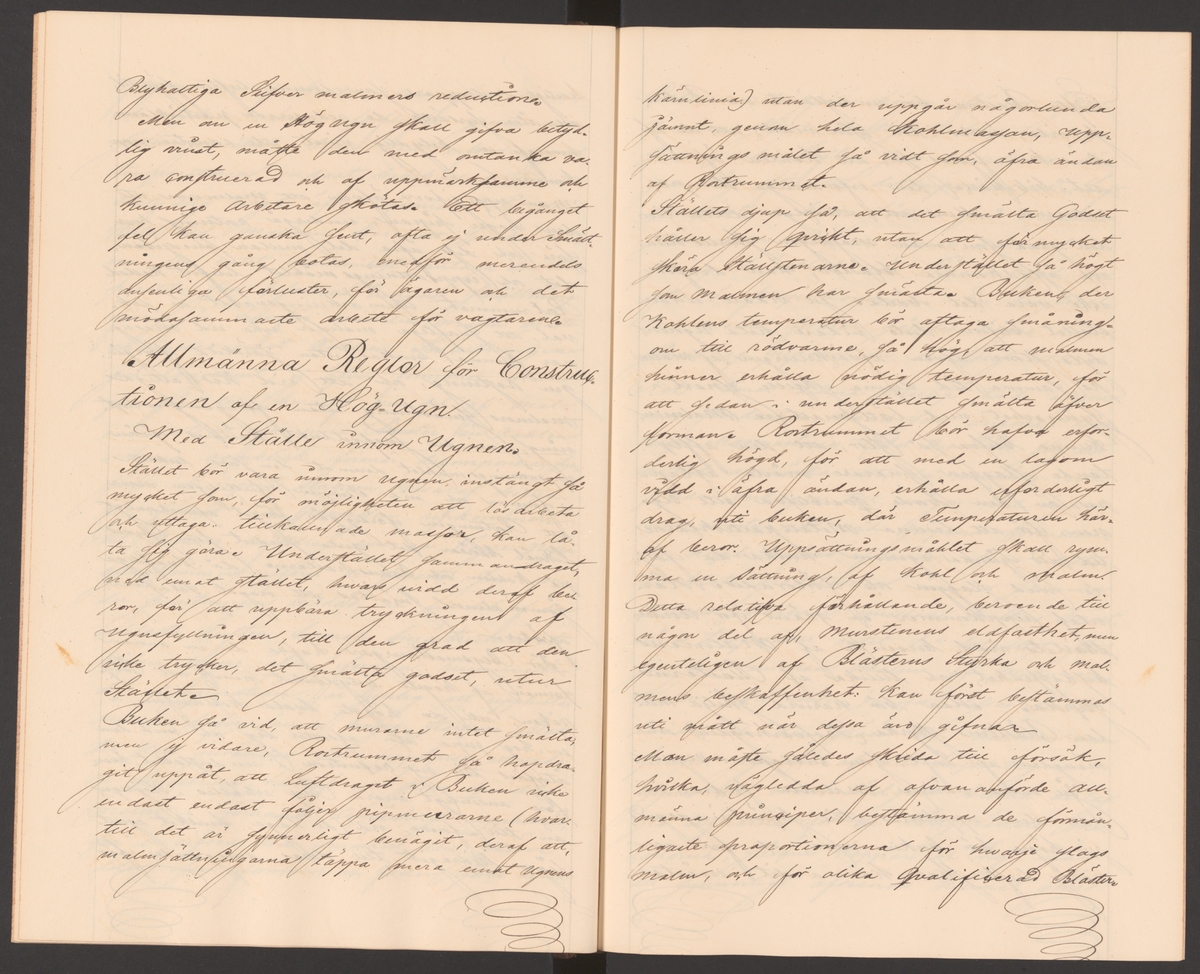 Blyhaltiga Silfver malmers reduction.
Men om en Hög Ugn skall gifva betyd-
lig vinst, måste den med omtanka va-
ra construerad och af uppmärksamme och
kunnige Arbetare skötas. Ett begånget
fel kan ganska sent, ofta ej under Smält-
ningens gång botas, medför merendels
ansenliga förluster, för ägaren och det
mödosammaste arbete för vagtarene.
Allmänna Reglor för Construc-
tionen af en Hög-Ugn.
Med Ställe innom Ugnen.
Stället bör vara innom Ugnen instängt så
mycket som, för möjligheten att losarbeta
och uttaga tillkallnade massor, kan lå-
ta sig göra. Understället sammandraget,
ned emot stället, hvars vidd deraf be-
ror, för att uppbära tryckningen af
Ugnsfyllningen, till den grad att den
icke trycker, det smälta godset, utur
Stället.
Buken så vid, att murarne intet smälta,
men ej vidare, Rostrummet så hopdra-
git uppåt, att Luftdraget i Buken icke
endast endast följer pipmurarne (hvar-
till det är synnerligt benägit, deraf att,
malmsättningarna täppa mera emot Ugnens
kärnlinia) utan der uppgår någorlunda
jämnt, genom hela Kohlmassan, Upp-
sättnings målet så vidt som, öfra ändan
af Rostrummet.
Ställets djup så, att det smälta Godset
håller sig qvickt, utan att förmycket
skära Ställstenarne. Understället så högt
som Malmen har smälta. Buken, der
Kohlens temperatur bör aftaga småning-
om till rödvarme, så hög, att malmen
hinner erhålla nödig temperatur, för
att sedan i understället smälta öfver
forman. Rostrummet bör hafva erfor-
derlig högd, för att med en lagom
vidd i öfra ändan, erhålla erforderligt
drag, uti buken, där Temperaturen här-
af beror. Uppsättningsmåhlet skall rym-
ma en Sättning, af Kohl och Malm.
Detta relatifva förhållande, beroende till
någon del af, Murstenens eldfasthet, men
egenteligen af Blästerns Styrka och mal-
mens beskaffenhet: kan först bestämmas
uti mått när dessa äro gifna.
Man måste således skrida till försök,
hvilka, vägledda af ofvananförde all-
männa principer, bestämma de förmån-
ligaste proportionerna för hvarje slags
malm, och för olika qvalificerad Bläster.